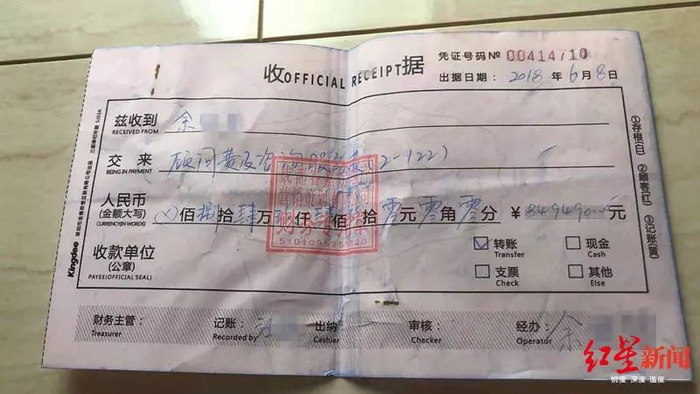 收OFFICIAL RECEIPT据
凭证号码№ 00414710
出据日期: 2018 年 6 月 8 日
兹收到 余
RECEIVED FROM
交来 顾问费及咨询服务费(2-122)
BEING IN PAYMENT
人民币 佰 捌 拾 肆 万 仟 肆 佰 拾 零 元 零 角 零 分 ¥ 元
(金额大写)
CURRENCY(IN WORDS)
收款单位
(公章)
PAYEE(OFFICIAL SEAL)
☑ 转账 □ 现金
Transfer Cash
□ 支票 □ 其他
Check Else
财务主管: 记账: 出纳: 审核: 经办: 余
Treasurer Recorded by Cashier Checker Operator
Kingdee
①存根(白) ②顾客(红) ③记账(黄)
红星新闻
锐度 深度 温度